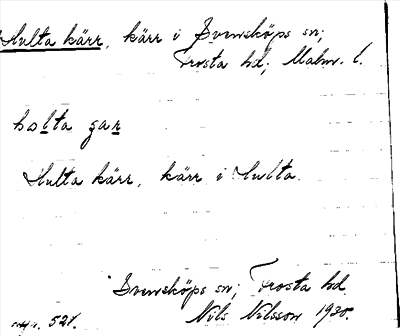 Hulta kärr, kärr i Svensköps sn;
Frosta hd; Malm. l.
holta gar
Hulta kärr, kärr i Hulta.
Svensköps sn; Frosta hd
Nils Nilsson 1930.
521.